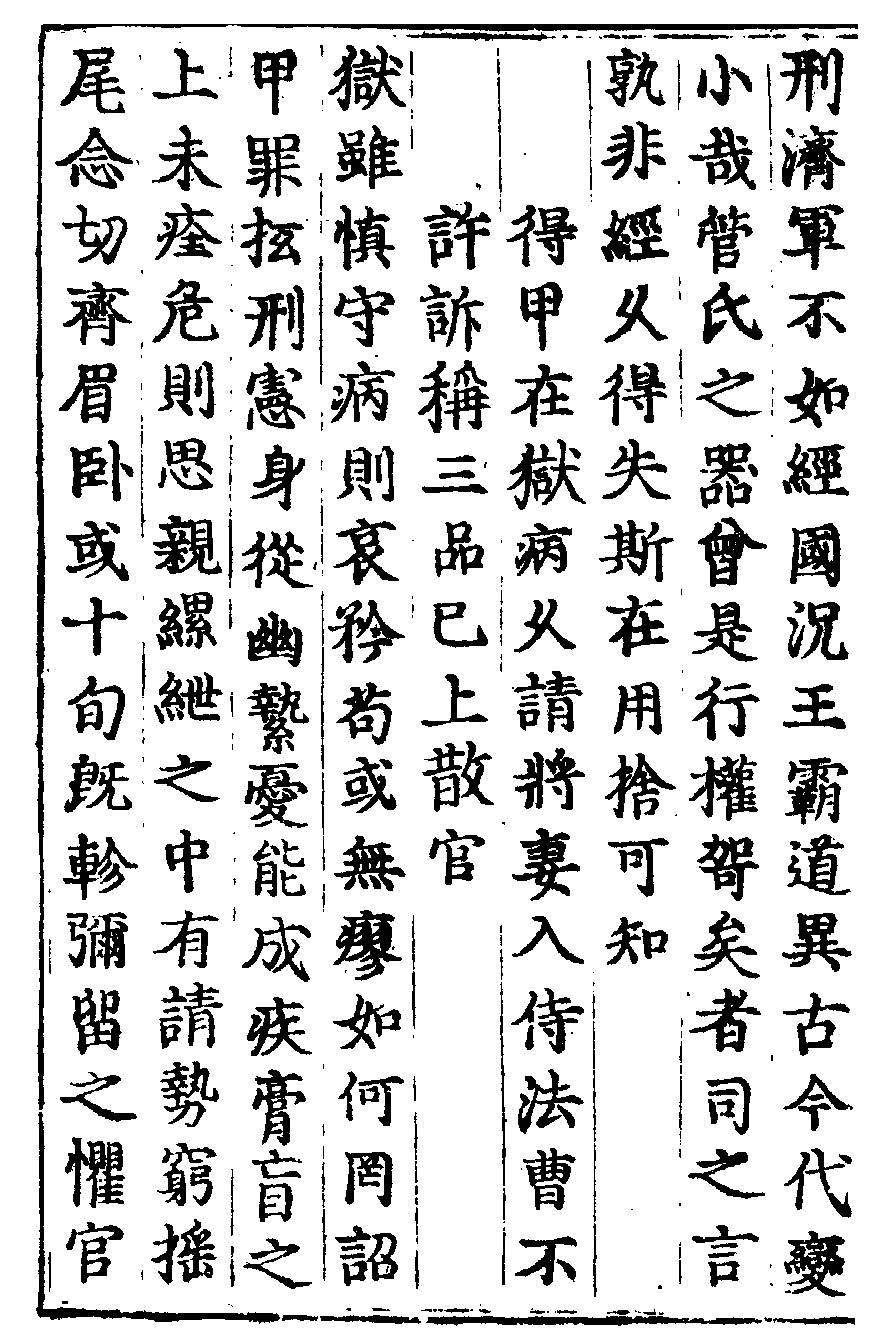 刑濟軍不如經國況王霸道異古今代變
小哉管氏之器曾是行權智矣者司之言
孰非經乆得失斯在用捨可知
得甲在獄病乆請將妻入侍法曹不
許訴稱三品已上散官
獄雖慎守病則哀矜苟或無瘳如何罔詔
甲罪抵刑憲身從幽縶憂能成疾膏盲之
上未痊危則思親縲紲之中有請勢窮搖
尾念切齊眉卧或十旬旣軫彌留之懼官